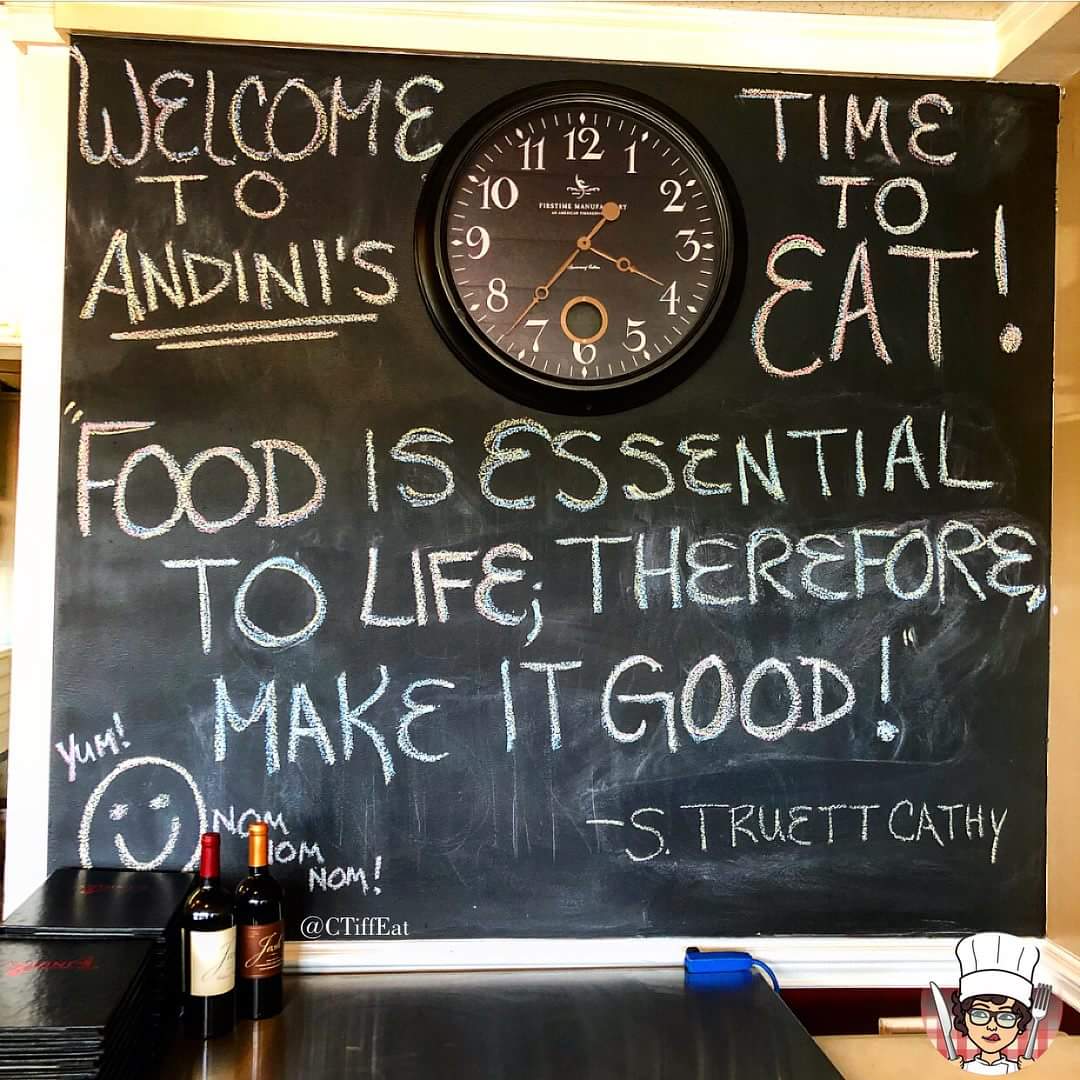 WELCOME
TO
ANDINI'S
TIME
TO
EAT!
12
1
2
3
4
5
6
7
8
9
10
11
FIRSTIME MANUFACTORY
"FOOD IS ESSENTIAL
TO LIFE; THEREFORE,
MAKE IT GOOD!"
-S. TRUETT CATHY
YUM!
NOM
NOM
NOM!
@CTiffEat